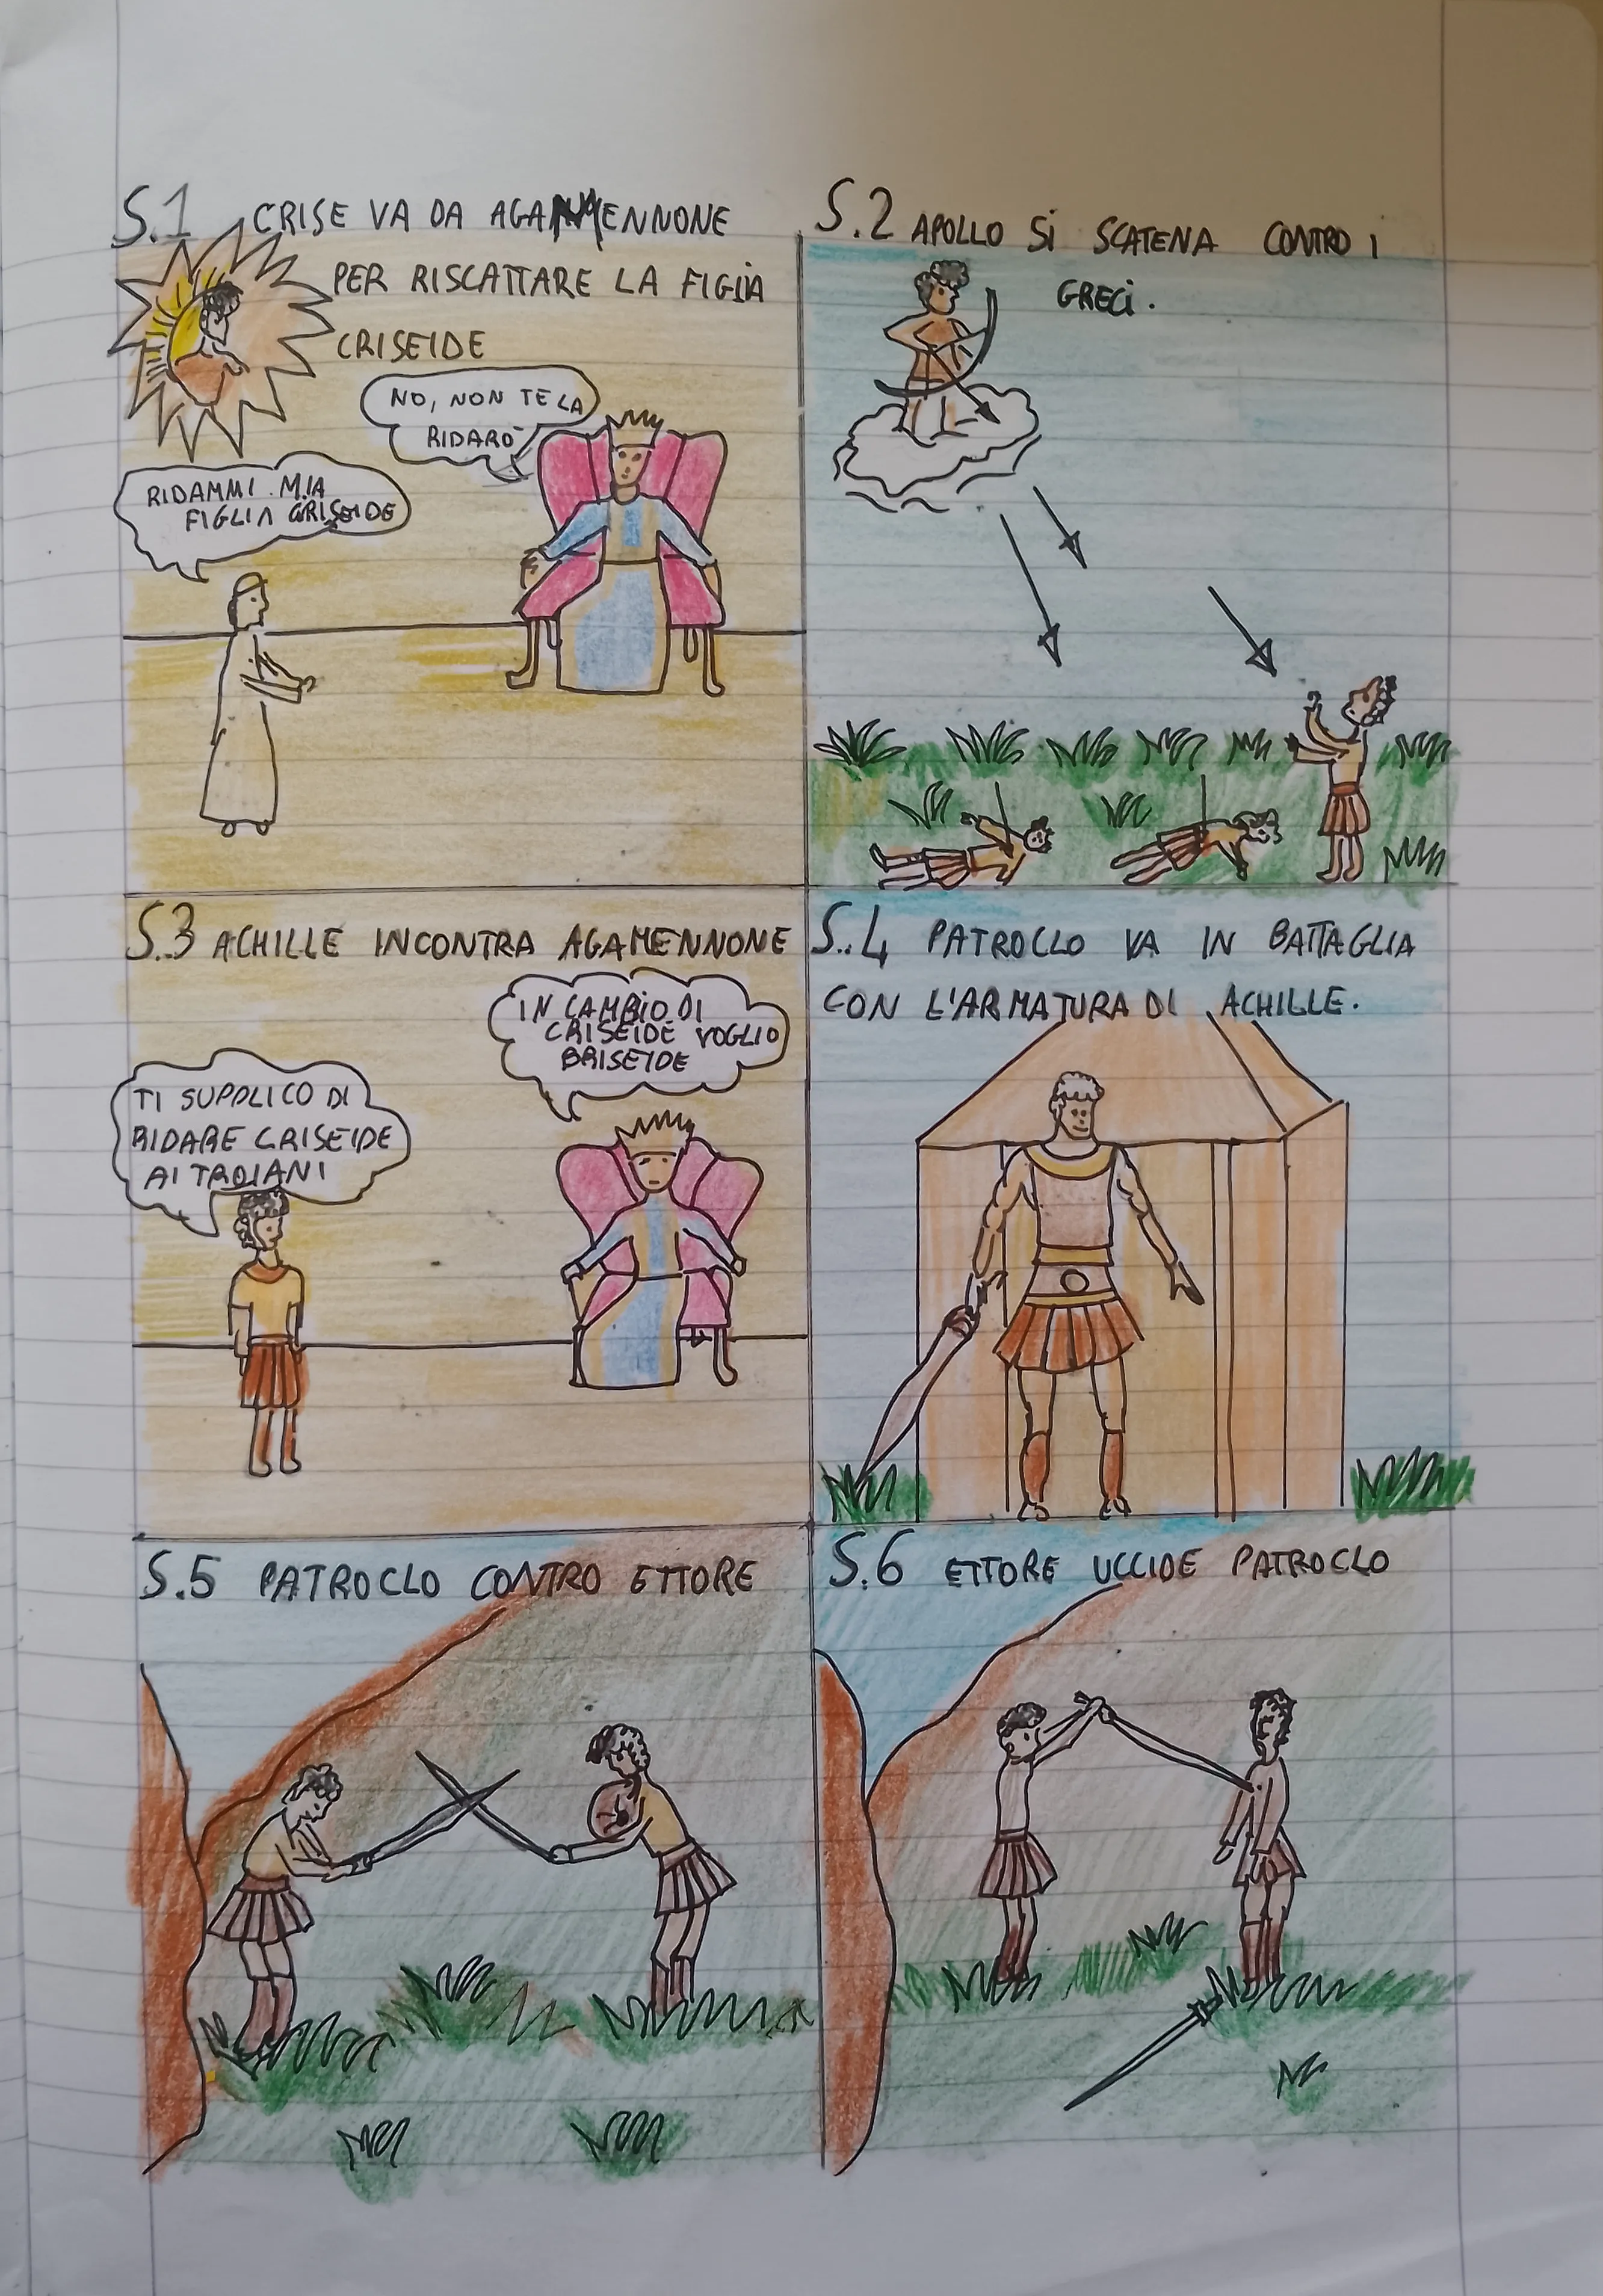 S.1 CRISE VA DA AGAMENNONE
PER RISCATTARE LA FIGLIA
CRISEIDE
NO, NON TE LA
RIDARÒ
RIDAMMI MIA
FIGLIA CRISEIDE
S.2 APOLLO SI SCATENA CONTRO I
GRECI.
S.3 ACHILLE INCONTRA AGAMENNONE
IN CAMBIO DI
CRISEIDE VOGLIO
BRISEIDE
TI SUPPLICO DI
RIDARE CRISEIDE
AI TROIANI
S.4 PATROCLO VA IN BATTAGLIA
CON L'ARMATURA DI ACHILLE.
S.5 PATROCLO CONTRO ETTORE
S.6 ETTORE UCCIDE PATROCLO